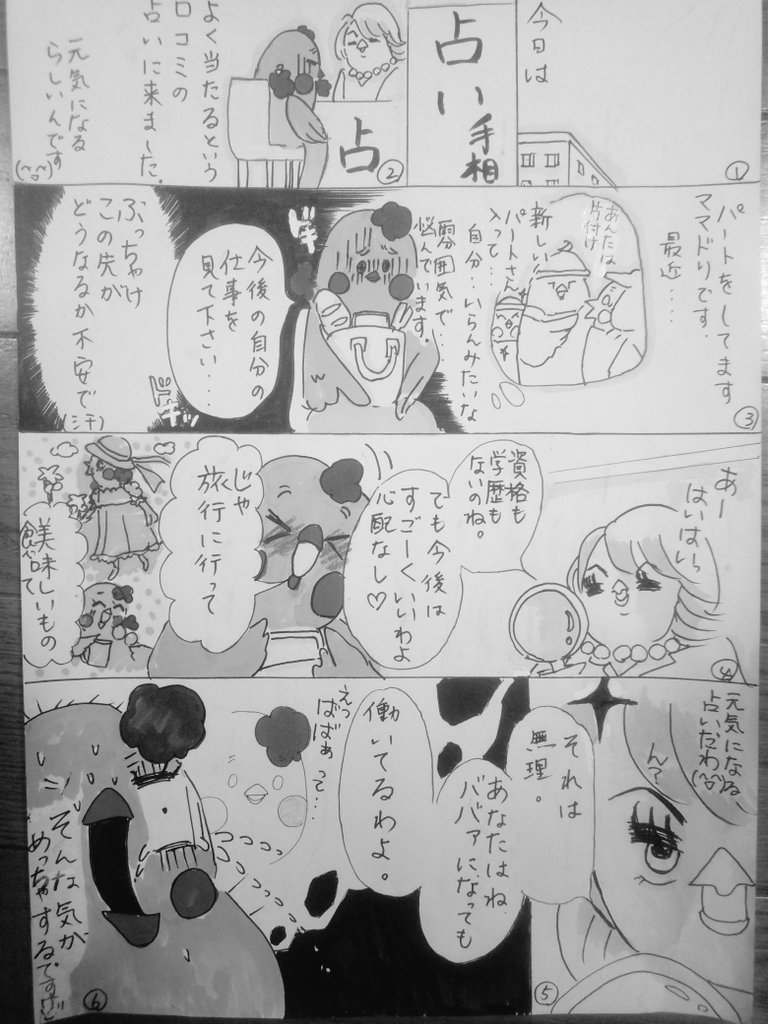 今日は
①
占い
手相
占
②
よく当たるという
口コミの
占いに来ました。
元気になる
らしいんです
(^o^)
パートをしてます
ママドリです。
最近…
あんたは
片付け
新しい
パートさん
入って…
自分…いらんみたいな
雰囲気で…
悩んでいます。
③
ドキ
今後の自分の
仕事を
見て下さい…
ドキッ
ぶっちゃけ
この先が
どうなるか不安で
(汗)
あー
はいはい
④
資格も
学歴も
ないのね。
でも今後は
すごーくいいわよ
心配なし♡
じゃ
旅行に行って
美味しいもの
食べて
元気になる
占いだわ(^o^)
ん?
⑤
それは
無理。
あなたはね、
ババアになっても
働いてるわよ。
えっ
ばばぁって…
そんな気が
めっちゃするですけど
⑥